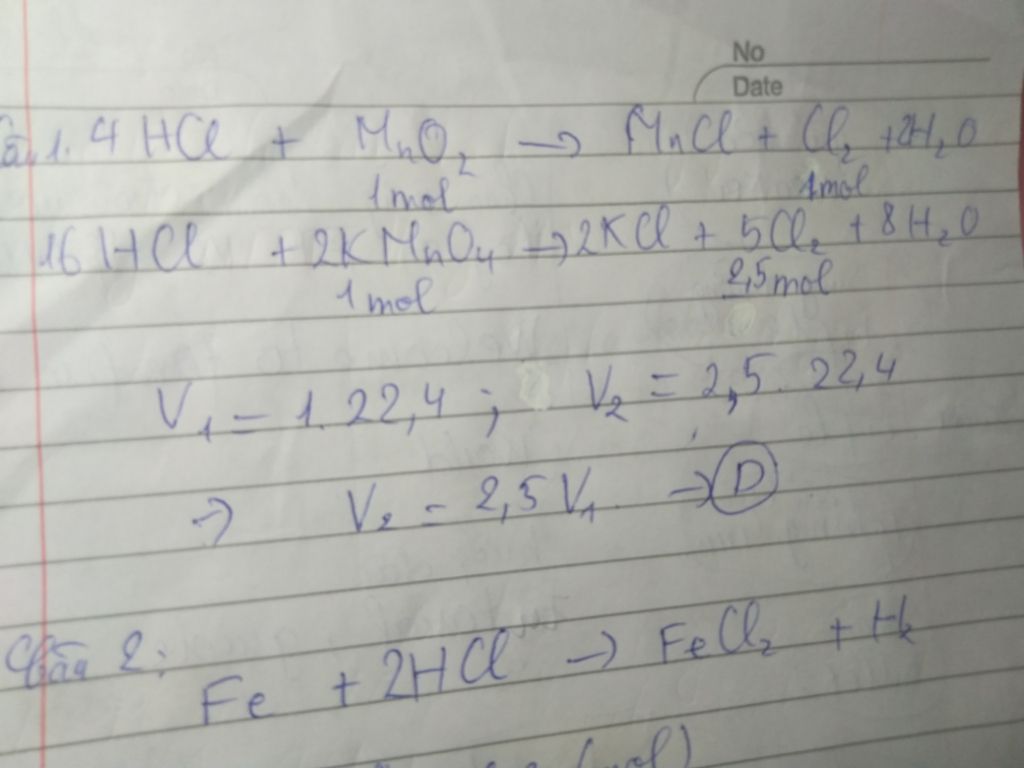 No
Date
Câu 1. 4 HCl + MnO2 → MnCl + Cl2 + 2H2O
1mol 1mol
16 HCl + 2KMnO4 → 2KCl + 5Cl2 + 8H2O
1mol 2,5mol
V1 = 1.22,4 ; V2 = 2,5.22,4
→ V2 = 2,5V1 → D
Câu 2:
Fe + 2HCl → FeCl2 + H2
(mol)